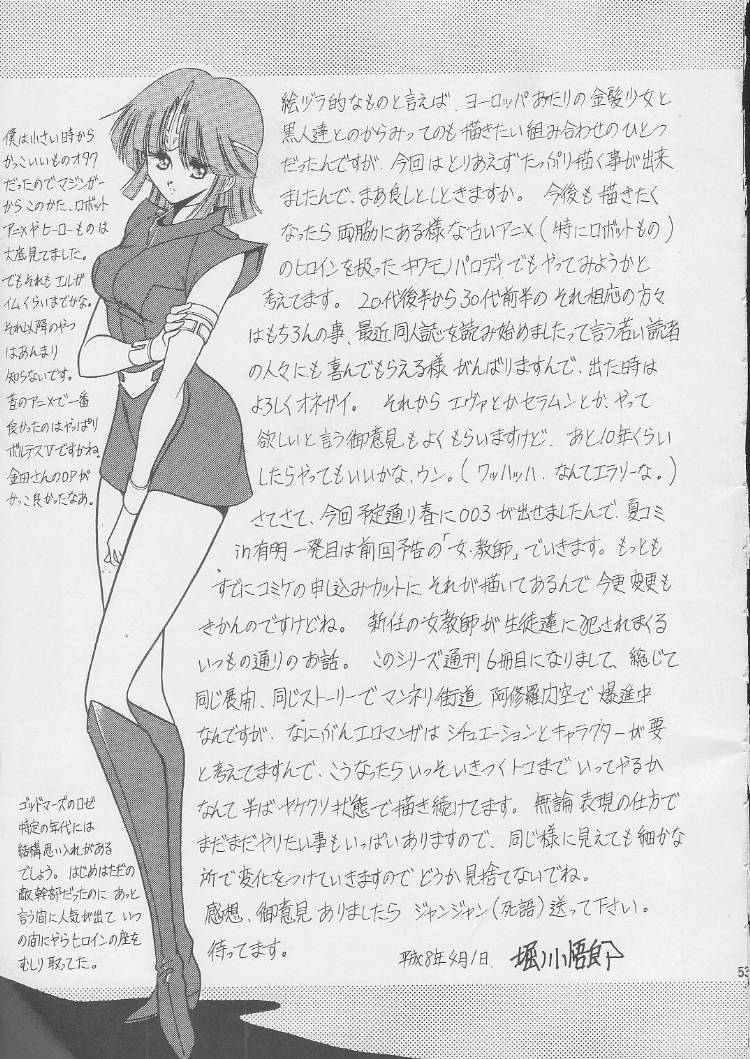 絵ヅラ的なものと言えば、ヨーロッパあたりの金髪少女と
黒人達とのからみってのも描きたい組み合わせのひとつ
だったんですが、今回はとりあえずたっぷり描く事が出来
ましたんで、まあ良しとしときますか。今後も描きたく
なったら両脇にある様な古いアニメ(特にロボットもの)
のヒロインを扱ったキワモノパロディでもやってみようかと
考えてます。20代後半から30代前半のそれ相応の方々
はもちろんの事、最近同人誌を読み始めましたって言う若い読者
の人々にも喜んでもらえる様がんばりますんで、出た時は
よろしくオネガイ。それからエヴァとかセラムンとか、やって
欲しいと言う御意見もよくもらいますけど、あと10年くらい
したらやってもいいかな、ウン。(ワッハッハ、なんてエラソーな。)
さてさて、今回予定通り春に003が出せましたんで、夏コミ
in有明一発目は前回予告の「女・教師」でいきます。もっとも
すでにコミケの申し込みカットにそれが描いてあるんで今更変更も
きかんのですけどね。新任の女教師が生徒達に犯されまくる
いつもの通りのお話。このシリーズ通刊6冊目になりまして、総じて
同じ展開、同じストーリーでマンネリ街道 阿修羅力空で爆進中
なんですが、なにぶんエロマンガはシチュエーションとキャラクターが要
と考えてますんで、こうなったらいっそいきつくトコまでいってやるか
なんて半ばヤケクソ状態で描き続けてます。無論表現の仕方で
まだまだやりたい事もいっぱいありますので、同じ様に見えても細かな
所で変化をつけていきますのでどうか見捨てないでね。
感想、御意見ありましたらジャンジャン(死語)送って下さい。
待ってます。
平成8年4月1日 堀川悟郎
僕は小さい時から
かっこいいものオタク
だったのでマジンガー
からこのかた、ロボット
アニメやヒーローものは
大底見てました。
でもそれもエルガ
イムくらいまでかな。
それ以降のやつ
はあんまり
知らないです。
昔のアニメで一番
良かったのはやっぱり
ボルテスVですかね。
金田さんのOPが
かっこ良かったなあ。
ゴッドマーズのロゼ
特定の年代には
結構思い入れがある
でしょう。はじめはただの
敵幹部だったのにあっと
言う間に人気が出ていつ
の間にやらヒロインの座を
むしり取ってた。
53